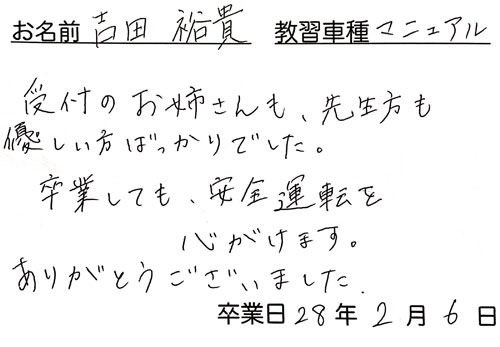 お名前 吉田 裕貴 教習車種 マニュアル
受付のお姉さんも、先生方も
優しい方ばっかりでした。
卒業しても、安全運転を
心がけます。
ありがとうございました.
卒業日 28 年 2 月 6 日